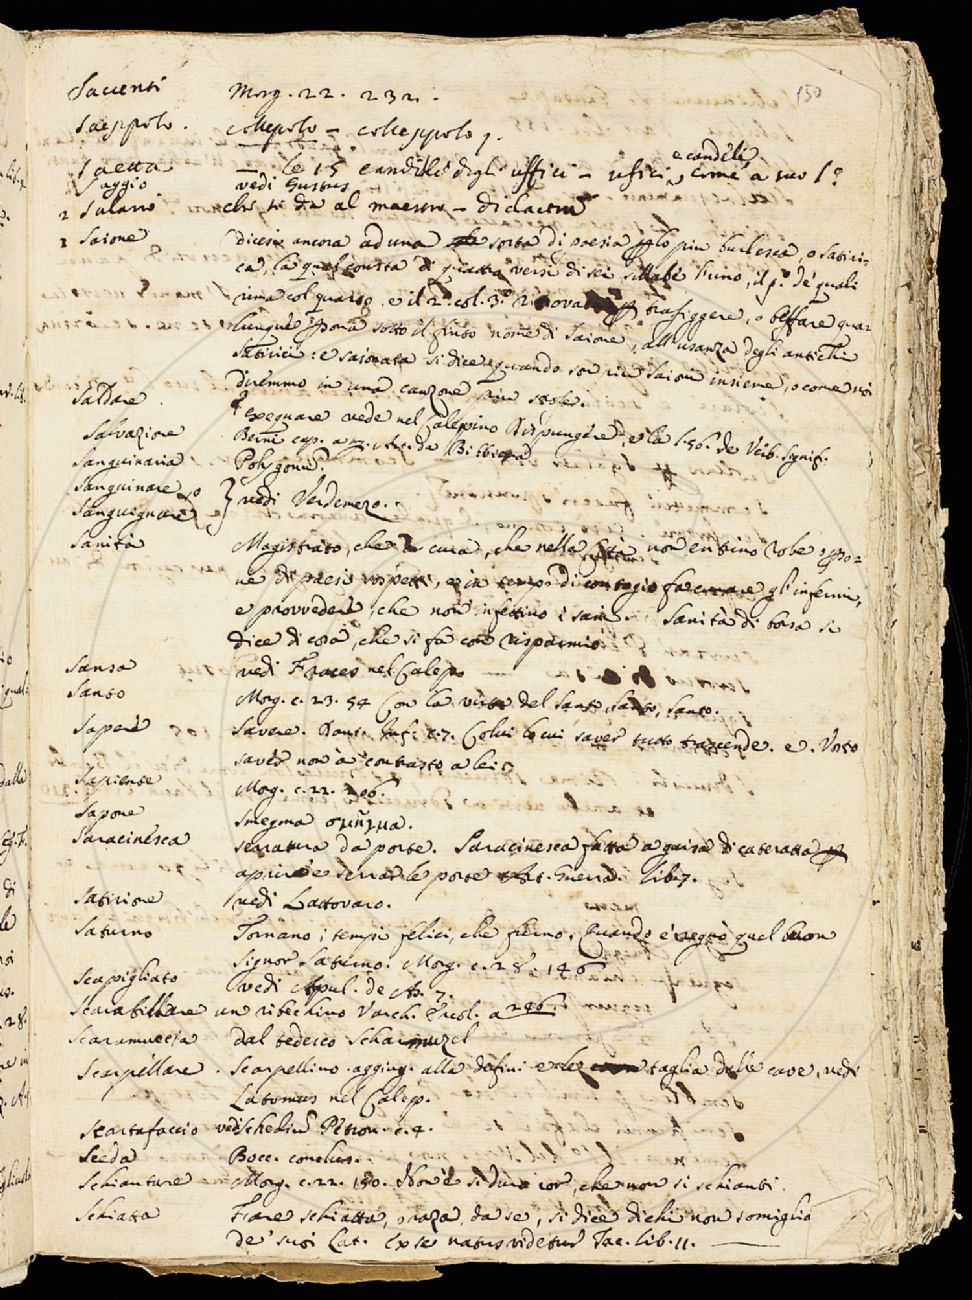 150
Saccenti Morg. 22. 232.
Saeppolo. collepolo - colleppolo
Saetta - le 15 candele degli uffici - ufici, e candele
Saggio vedi Gustus
2 Salario che si da al maestro - didactrū
1 Saione dicesi ancora ad una sorta di poesia lo piu burlesca, o satiri-
ca, la qual consta di quattro versi di sei sillabe l'uno, il p.º de quali
rima col quarto, e il 2.º col 3.º trafiggere, o beffare qua-
lunque sotto il finto nome di Saione, all'usanza degli antichi
Satirici: e saionata si dice quando son piu saioni insieme, o come noi
diremmo in una canzone piu stofe.
Saldare Expegnare vede nel Calepino Dispungere e la 156. de Verb. signif.
Salvazione Berni cap. a m. Ant. da Bibbiena
Sanguinaria Polygonū
Sanguinare
Sanguignare } vedi Verdemezo.
Sanità Magistrato, che à cura, che nella Città non entrino robe, o perso-
ne di paesi sospetti, e in tempo di contagio fa curare gl'infermi,
e provvedere, che non infettino i sani. Sanità di borsa si
dice di cosa, che si fa con risparmio.
Sansa vedi Fraces nel Calep.
Santo Mog. c. 23. 54 Con la virtu del Santo, Santo, Santo.
Sapere Savere. Dant. Inf. c. 7. Colui lo cui saver tutto trascende. e. Vostro
saver non à contasto a lei
Sapiente Mog. c. 22. 206.
Sapone Smegma σμῆγμα.
Saracinesca serratura da porte. Saracinesca fatta a guisa di cateratta
aprire e serrar le porte Art. Guerra. lib. 7.
Satirione vedi Lattovaro.
Saturno Tornano i tempi felici, che fierno, Quando e' regnò quel buon
Signor Saturno. Morg. c. 28. 146
Scapigliato vedi Apul. de As. 7.
Scarabillare un ribechino Varch. Ercol. a 296
Scaramuccia dal tedesco Scharmuzel
Scarpellare. Scarpellino. aggiug. alla defini e le taglia delle cave, vedi
Latomus nel Calep.
Scartafaccio vedi schediū Petron. c. 4.
Sceda Bocc. conclus.
Schiantare Morg. c. 22. 150. Non è si duro cor, che non si schianti.
Schiatta Fare schiatta, o raza, da se, si dice di chi non somiglia
de' suoi Lat. Ex se natus videtur Tac. lib. 11.